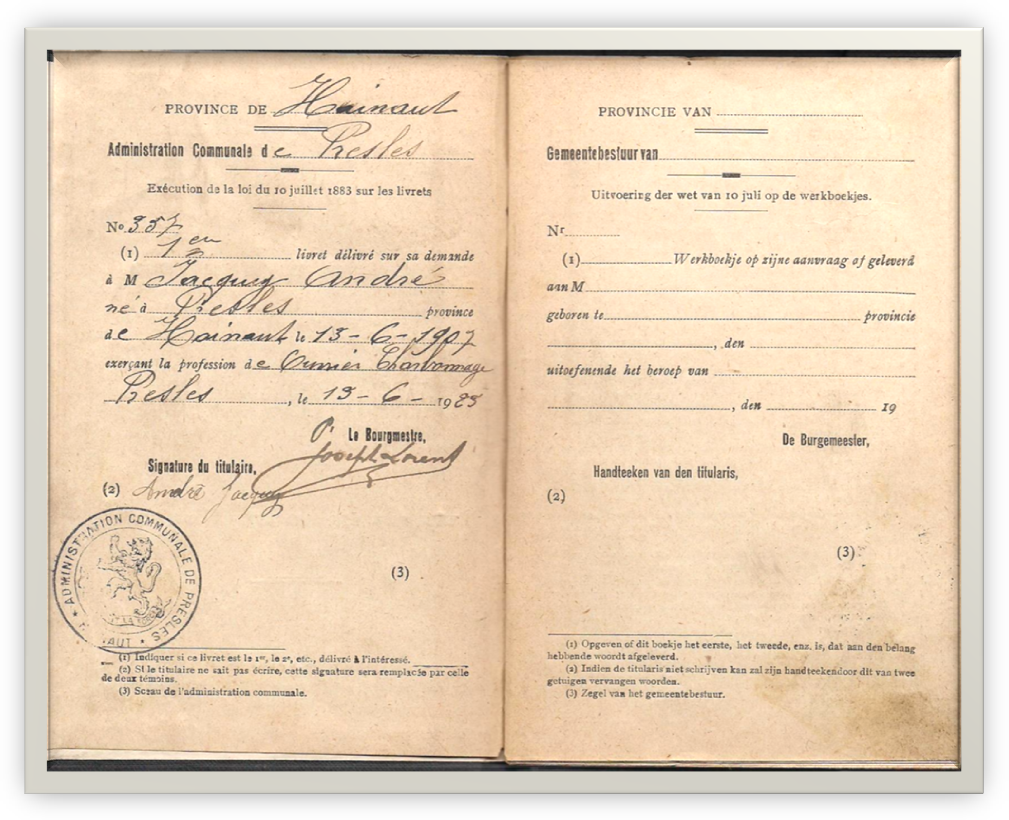 PROVINCE DE Hainaut
Administration Communale de Presles
Exécution de la loi du 10 juillet 1883 sur les livrets
No 357
(1) 1er livret délivré sur sa demande
à M Jacquy André
né à Presles province
de Hainaut le 13-6-1907
exerçant la profession de Ouvrier Charbonnage
Presles, le 13-6-1925
Pr Le Bourgmestre,
Joseph Lorent
Signature du titulaire,
(2) André Jacquy
ADMINISTRATION COMMUNALE DE PRESLES
(3)
(1) Indiquer si ce livret est le 1er, le 2e, etc., délivré à l'intéressé.
(2) Si le titulaire ne sait pas écrire, cette signature sera remplacée par celle
de deux témoins.
(3) Sceau de l'administration communale.
PROVINCIE VAN
Gemeentebestuur van
Uitvoering der wet van 10 juli op de werkboekjes.
Nr
(1) Werkboekje op zijne aanvraag of geleverd
aan M
geboren te provincie
, den
uitoefenende het beroep van
, den 19
De Burgemeester,
Handteeken van den titularis,
(2)
(3)
(1) Opgeven of dit boekje het eerste, het tweede, enz. is, dat aan den belang
hebbende woordt afgeleverd.
(2) Indien de titularis niet schrijven kan zal zijn handteekendoor dit van twee
getuigen vervangen woorden.
(3) Zegel van het gemeentebestuur.